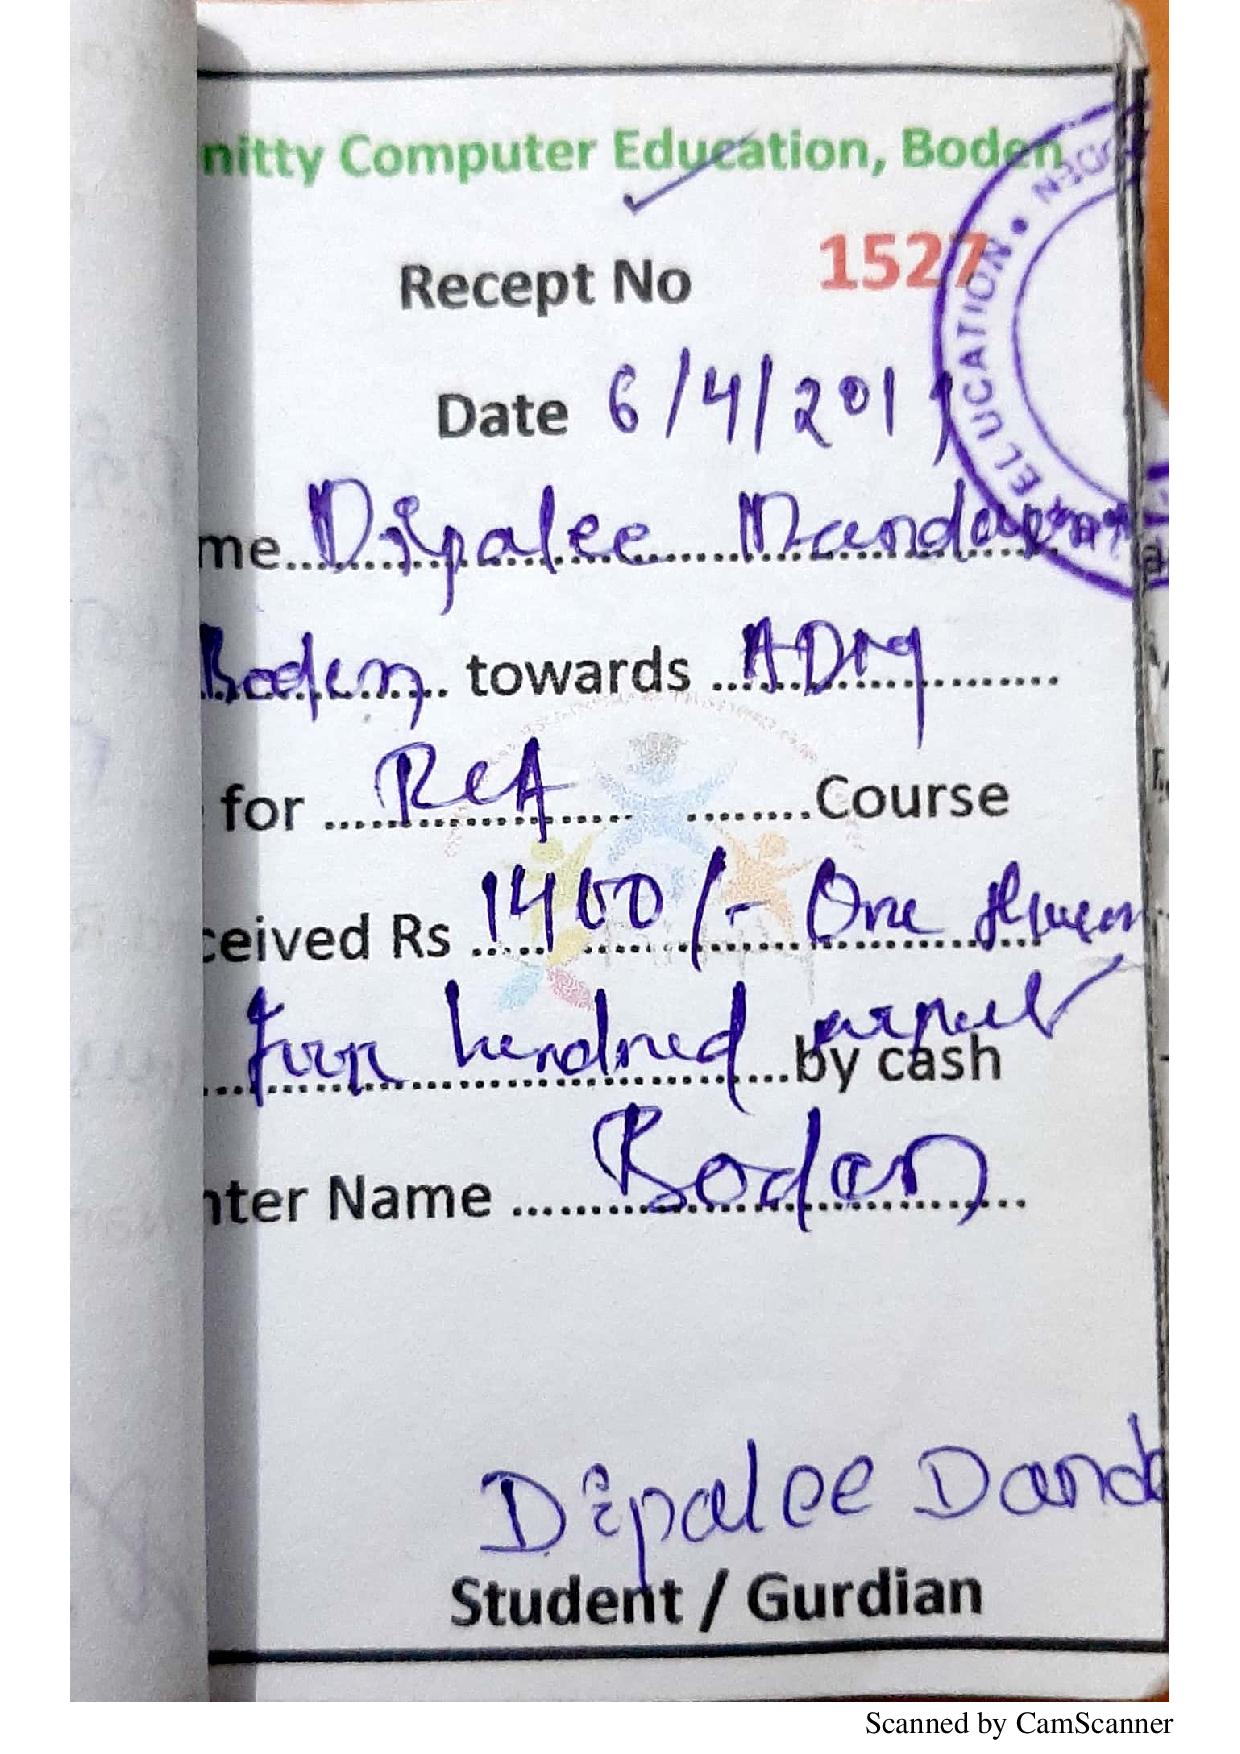 nitty Computer Education, Boden
Recept No 1527
Date 6/4/201
me Dipalee
Boden towards ADM
for Course
ceived Rs 1400/- One
four hundred
by cash
nter Name Boden
Dipalee Dand
Student / Gurdian
UCATION
Scanned by CamScanner